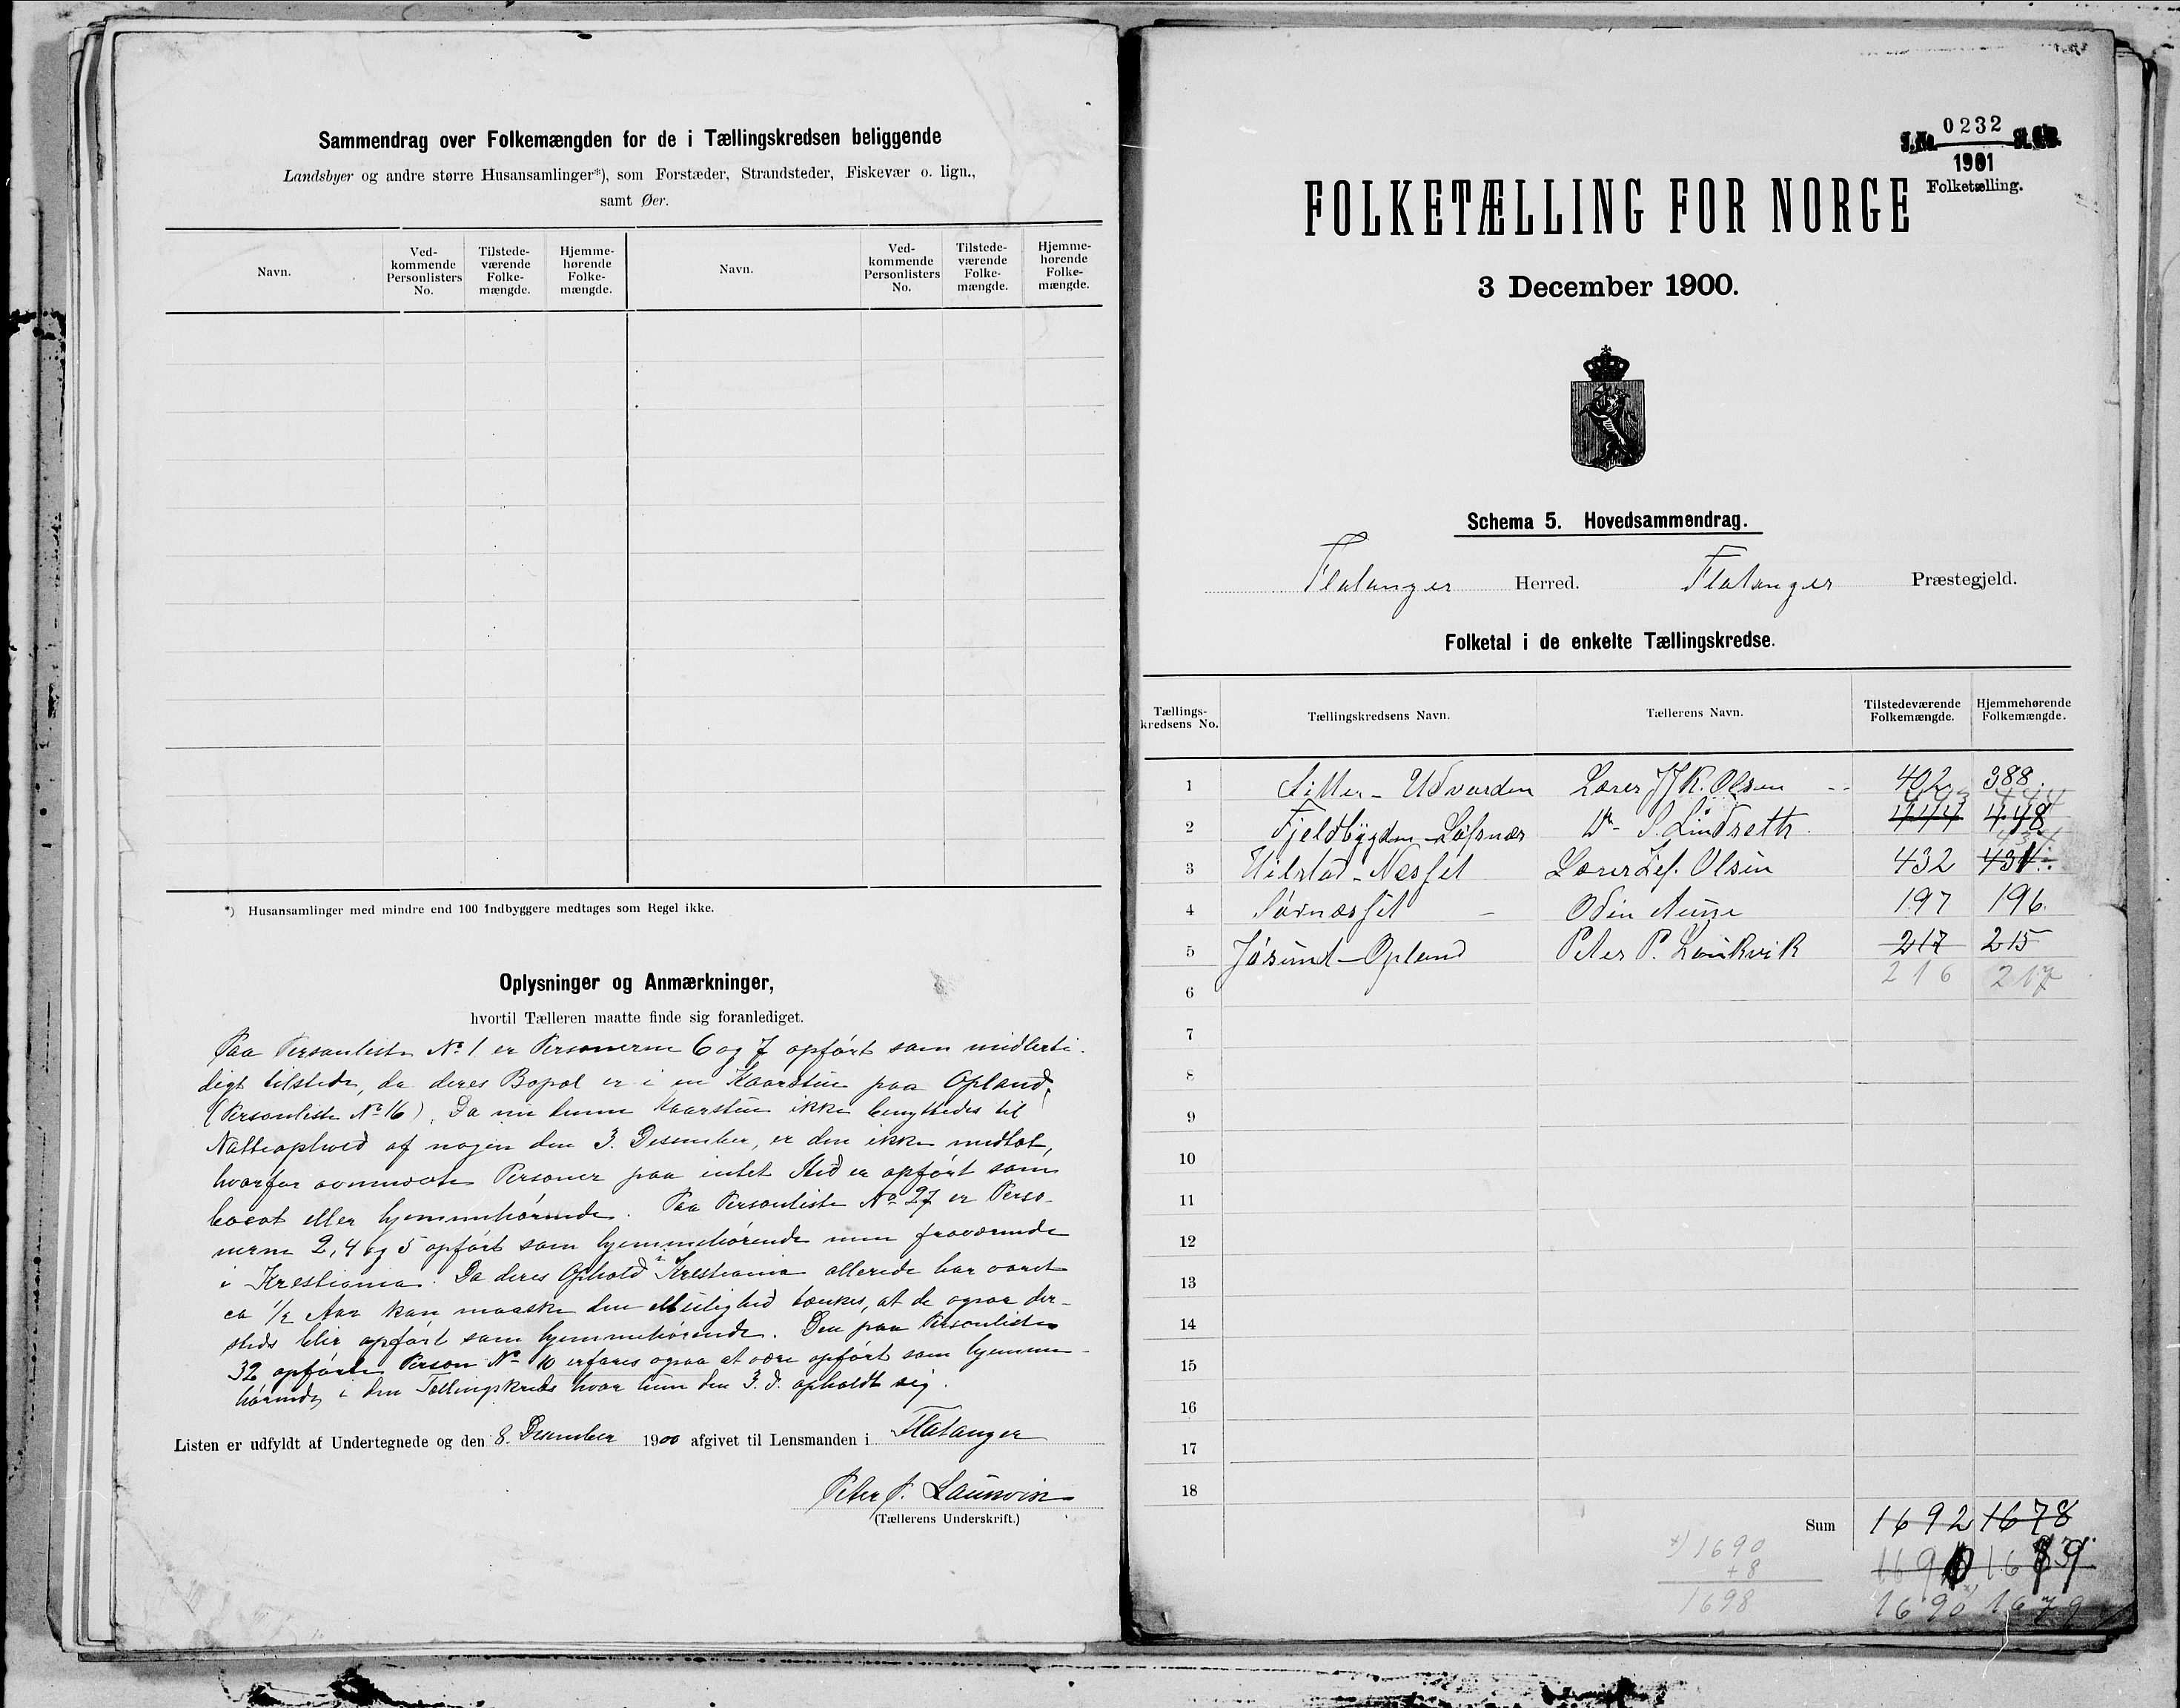 Sammendrag over Folkemængden for de i Tællingskredsen beliggende
Landsbyer og andre større Husansamlinger*), som Forstæder, Strandsteder, Fiskevær o. lign.,
samt Øer.
Navn.
Ved-
kommende
Personlisters
No.
Tilstede-
værende
Folke-
mængde.
Hjemme-
hørende
Folke-
mængde.
Navn.
Ved-
kommende
Personlisters
No.
Tilstede-
værende
Folke-
mængde.
Hjemme-
hørende
Folke-
mængde.
*) Husansamlinger med mindre end 100 Indbyggere medtages som Regel ikke.
Oplysninger og Anmærkninger,
hvortil Tælleren maatte finde sig foranlediget.
Paa Personliste No. 1 er Personerne 6 og 7 opført som midlerti-
digt tilstede, da deres Bopæl er i en Kaarstue paa Opland.
(Personliste No 16). Da nu denne Kaarstue ikke benyttedes til
Natteophold af nogen den 3. Desember, er den ikke medtat,
hvorfor ovennævnte Personer paa intet Sted er opført som
bosat eller hjemmehørende. Paa Personliste No. 27 er Perso-
nerne 2, 4 og 5 opført som hjemmehørende men fraværende
i Krestiania. Da deres Ophold i Krestiania allerede har varet
ca 1/2 Aar kan maaske den Mulighed tænkes, at de ogsaa der-
steds blir opført som hjemmehørende. Den paa Personliste
32 opførte Person No 10 erfares ogsaa at være opført som hjemme-
hørende i den Tællingskreds hvor hun den 3. d. opholdt sig.
Listen er udfyldt af Undertegnede og den 8. Desember 1900 afgivet til Lensmanden i Flatanger
Peter P. Laukvik
(Tællerens Underskrift.)
J. No. 0232 St. C.B.
1901
Folketælling.
FOLKETÆLLING FOR NORGE
3 December 1900.
Schema 5. Hovedsammendrag.
Flatanger Herred. Flatanger Præstegjeld.
Folketal i de enkelte Tællingskredse.
Tællings-
kredsens No.
Tællingskredsens Navn.
Tællerens Navn.
Tilstedeværende
Folkemængde.
Hjemmehørende
Folkemængde.
1 Sitter - Udvorden Lærer J. K. Olsen 402 388
2 Fjeldbygden - Løfsnæs S. Lindseth 444 448
3 Utilstad - Næsset Lærer Olsen 432 431
4 Sørnæsset Odin Aune 197 196
5 Jøsund - Opland Peter P. Laukvik 217 215
6 216 217
7
8
9
10
11
12
13
14
15
16
17
18
Sum 1692 1678
1690
+ 8
1698
1690 1679